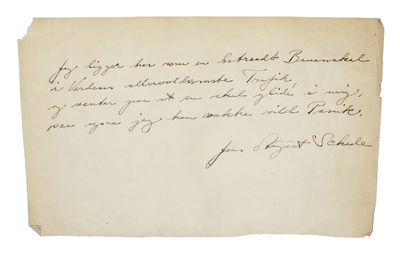 Jeg ligger her som en betraadt Bananskal
i Verdens allervoldsomste Trafik,
og venter paa at en skal glide i mig,
saa ogsaa jeg kan vække vild Panik.
Jens August Schade